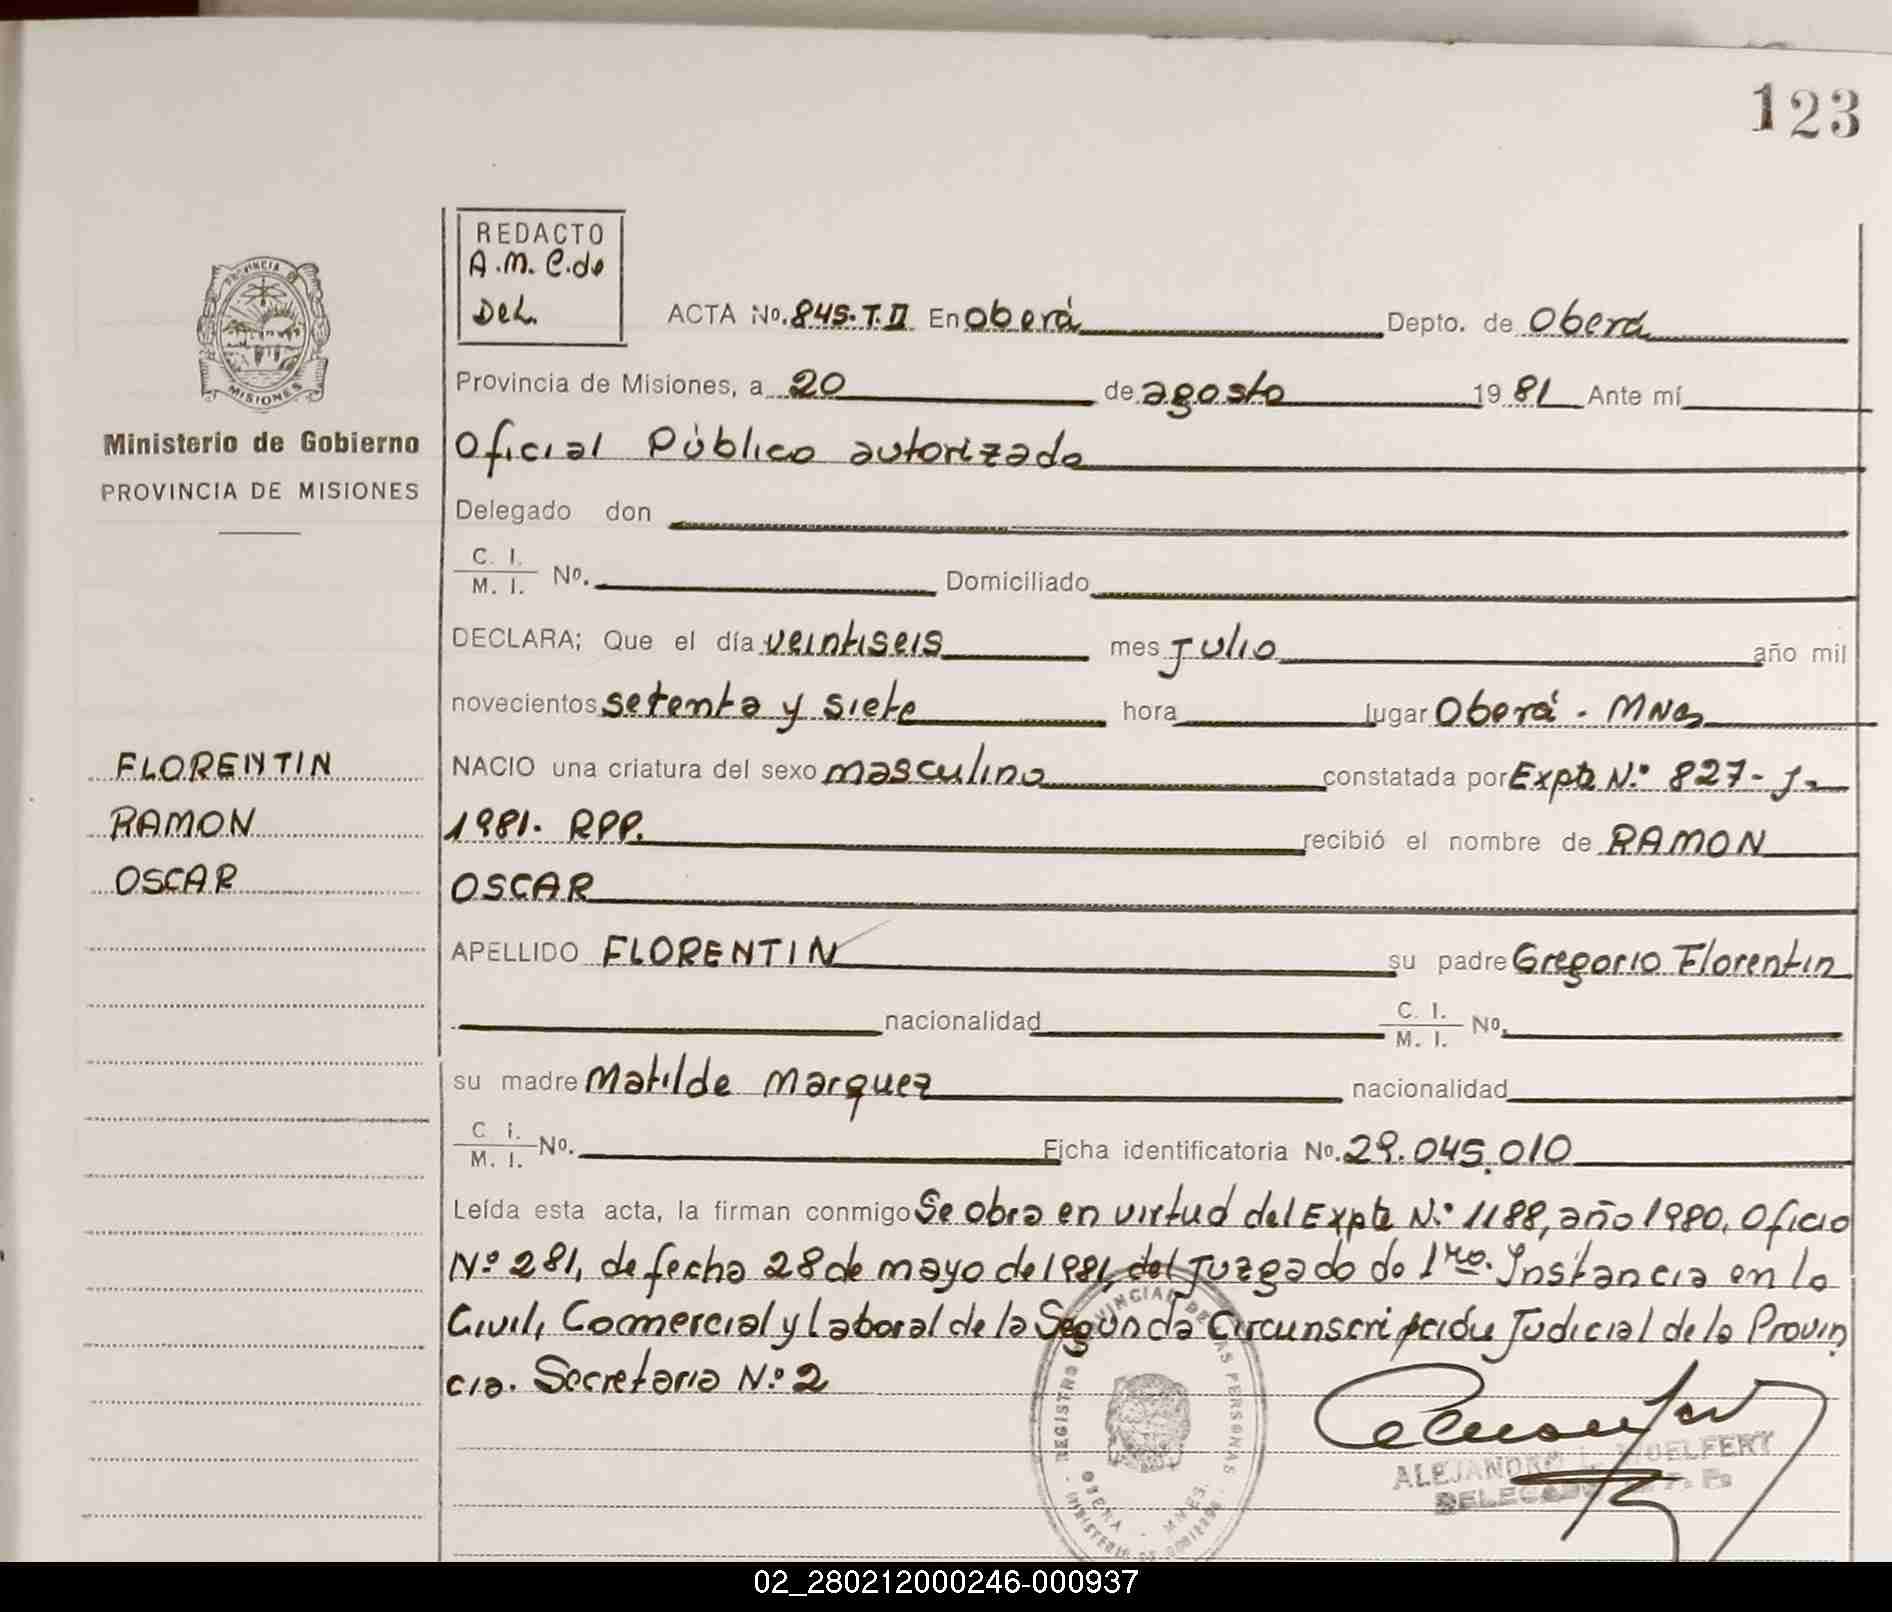 123
REDACTO
A.M. C.de
Del.
PROVINCIA DE
MISIONES
ACTA No. 845.T.II En Oberá Depto. de Oberá
Provincia de Misiones, a 20 de agosto 1981 Ante mí
Ministerio de Gobierno
PROVINCIA DE MISIONES
Oficial Público autorizado
Delegado don
C. I.
M. I. No. Domiciliado
DECLARA; Que el día veintiseis mes Julio año mil
novecientos setenta y siete hora lugar Oberá - MNes
FLORENTIN
RAMON
OSCAR
NACIO una criatura del sexo masculino constatada por Expte N.º 827- J-
1981. RPP. recibió el nombre de RAMON
OSCAR
APELLIDO FLORENTIN su padre Gregorio Florentin
nacionalidad C. I.
M. I. No.
su madre Matilde Marquez nacionalidad
C. I.
M. I. No. Ficha identificatoria No. 29.045.010
Leída esta acta, la firman conmigo Se obra en virtud del Expte N.º 1188, año 1980, Oficio
Nº 281, de fecha 28 de mayo de 1981, del Juzgado de 1ra. Instancia en lo
Civil, Comercial y Laboral de la Segunda Circunscripción Judicial de la Provin
cia. Secretaria N.º 2
REGISTRO PROVINCIAL DE LAS PERSONAS
OBERA - MNES.
MINISTERIO DE GOBIERNO
ALEJANDRO L. WUELFERT
02_280212000246-000937